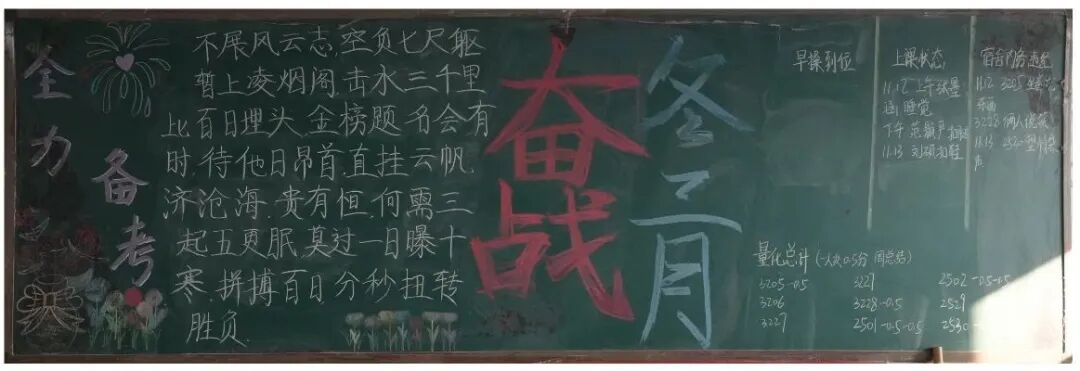 全力
备考
不展风云志,空负七尺躯
暂上凌烟阁,击水三千里
比百日埋头,金榜题名会有
时,待他日昂首,直挂云帆,
济沧海,贵有恒,何需三
起五更眠,莫过一日曝十
寒,拼搏百日分秒扭转
胜负.
奋战
冬二月
早操到位
上课状态
11.12 上午
睡觉
下午
11.13 刘硕
宿舍内务
11.12 3205
3228
11.13
量化总计 (一人次0.5分 周总结)
3205-0.5 3227 2502-0.5-0.5
3206 3228-0.5 2529
3227 2501-0.5-0.5 2530